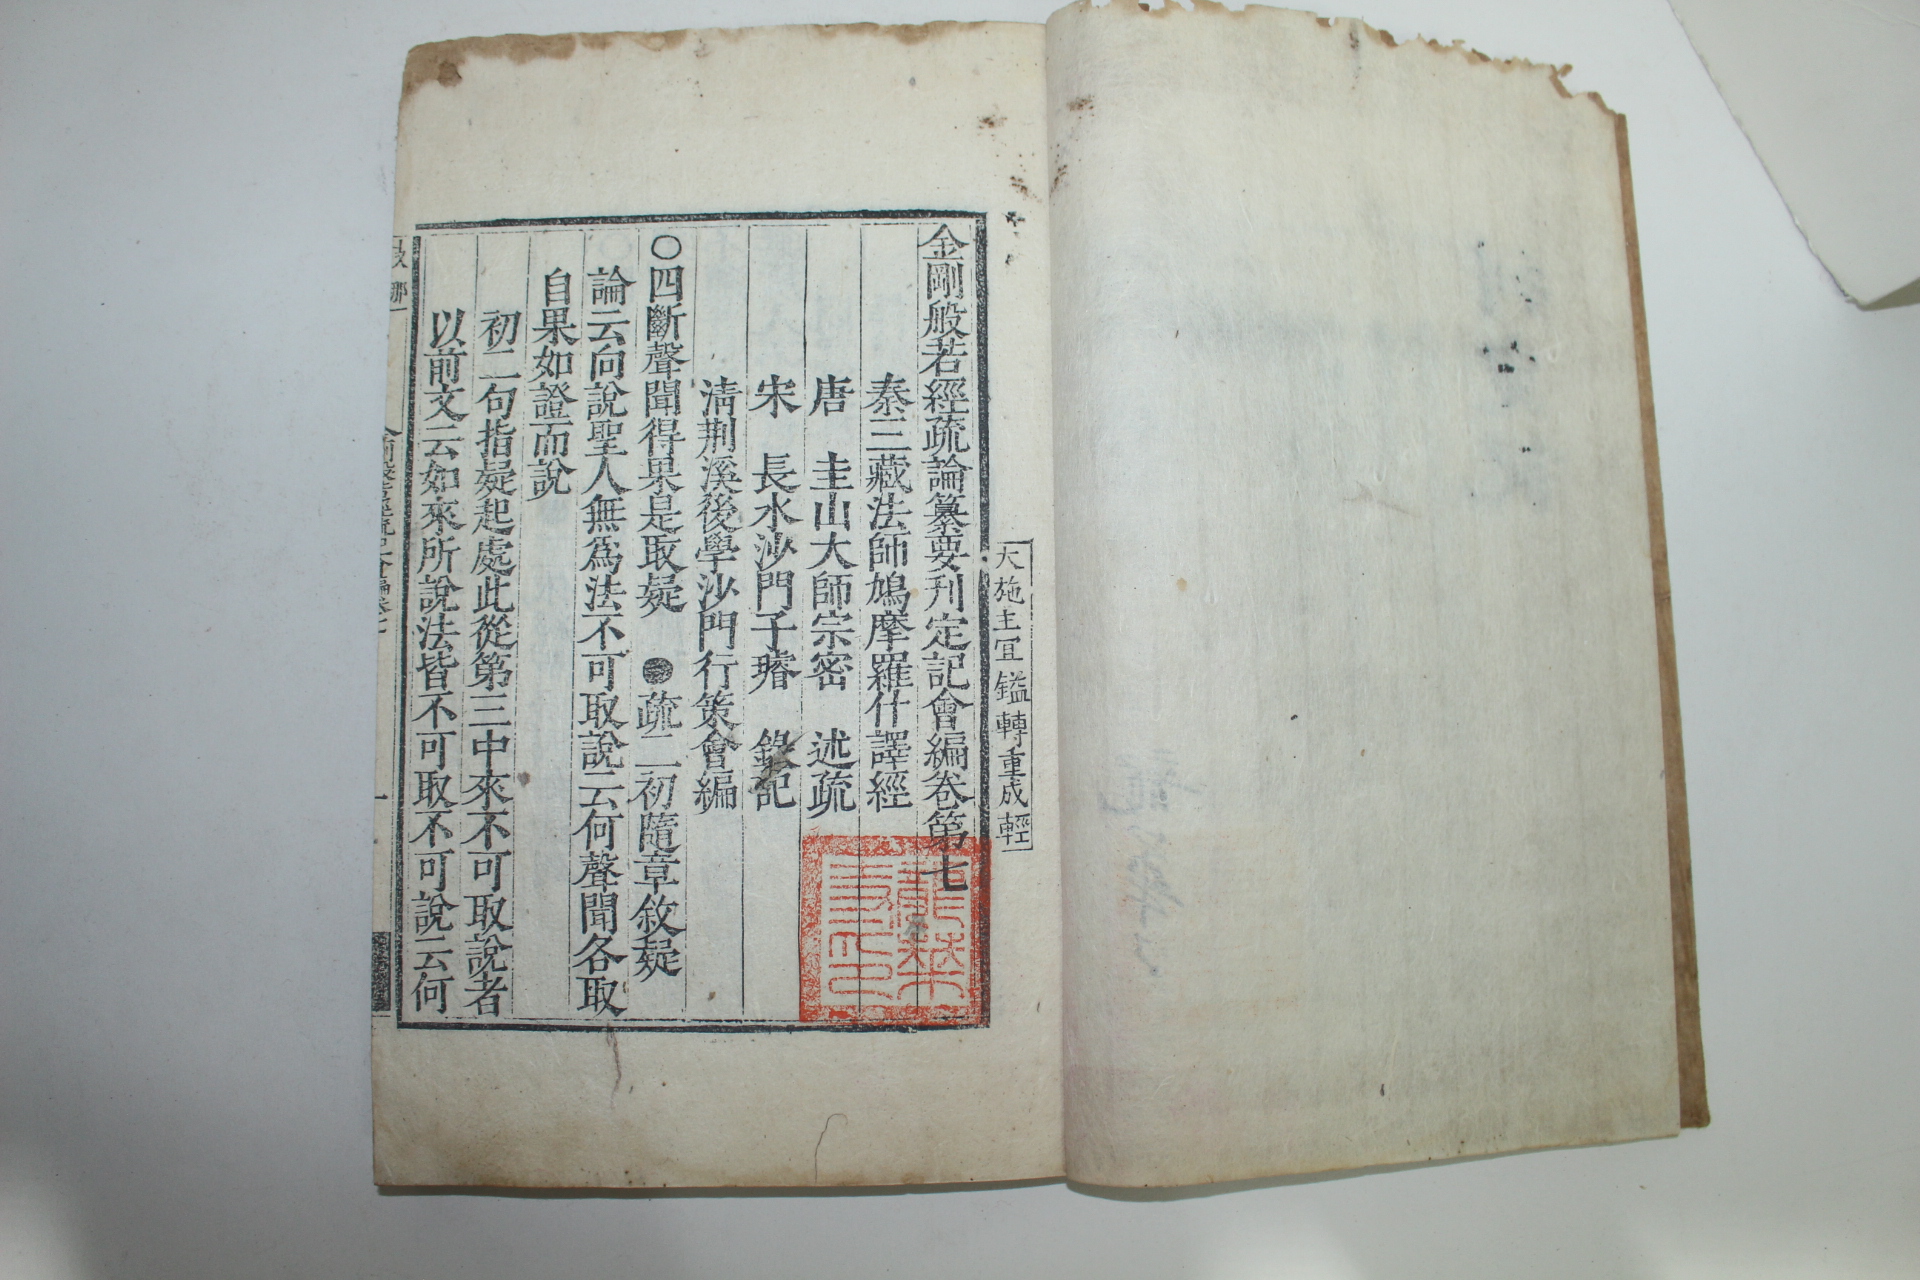 大施主冝鎰轉重成輕
金剛般若經疏論纂要刋定記會編卷第七
秦三藏法師鳩摩羅什譯經
唐 圭山大師宗密 述疏
宋 長水沙門子璿 錄記
清荆溪後學沙門行策會編
○四斷聲聞得果是取疑 ●疏二初隨章敘疑
論云向說聖人無為法不可取說云何聲聞各取
自果如證而說
初二句指疑起處此從第三中來不可取說者
以前文云如來所說法皆不可取不可說云何